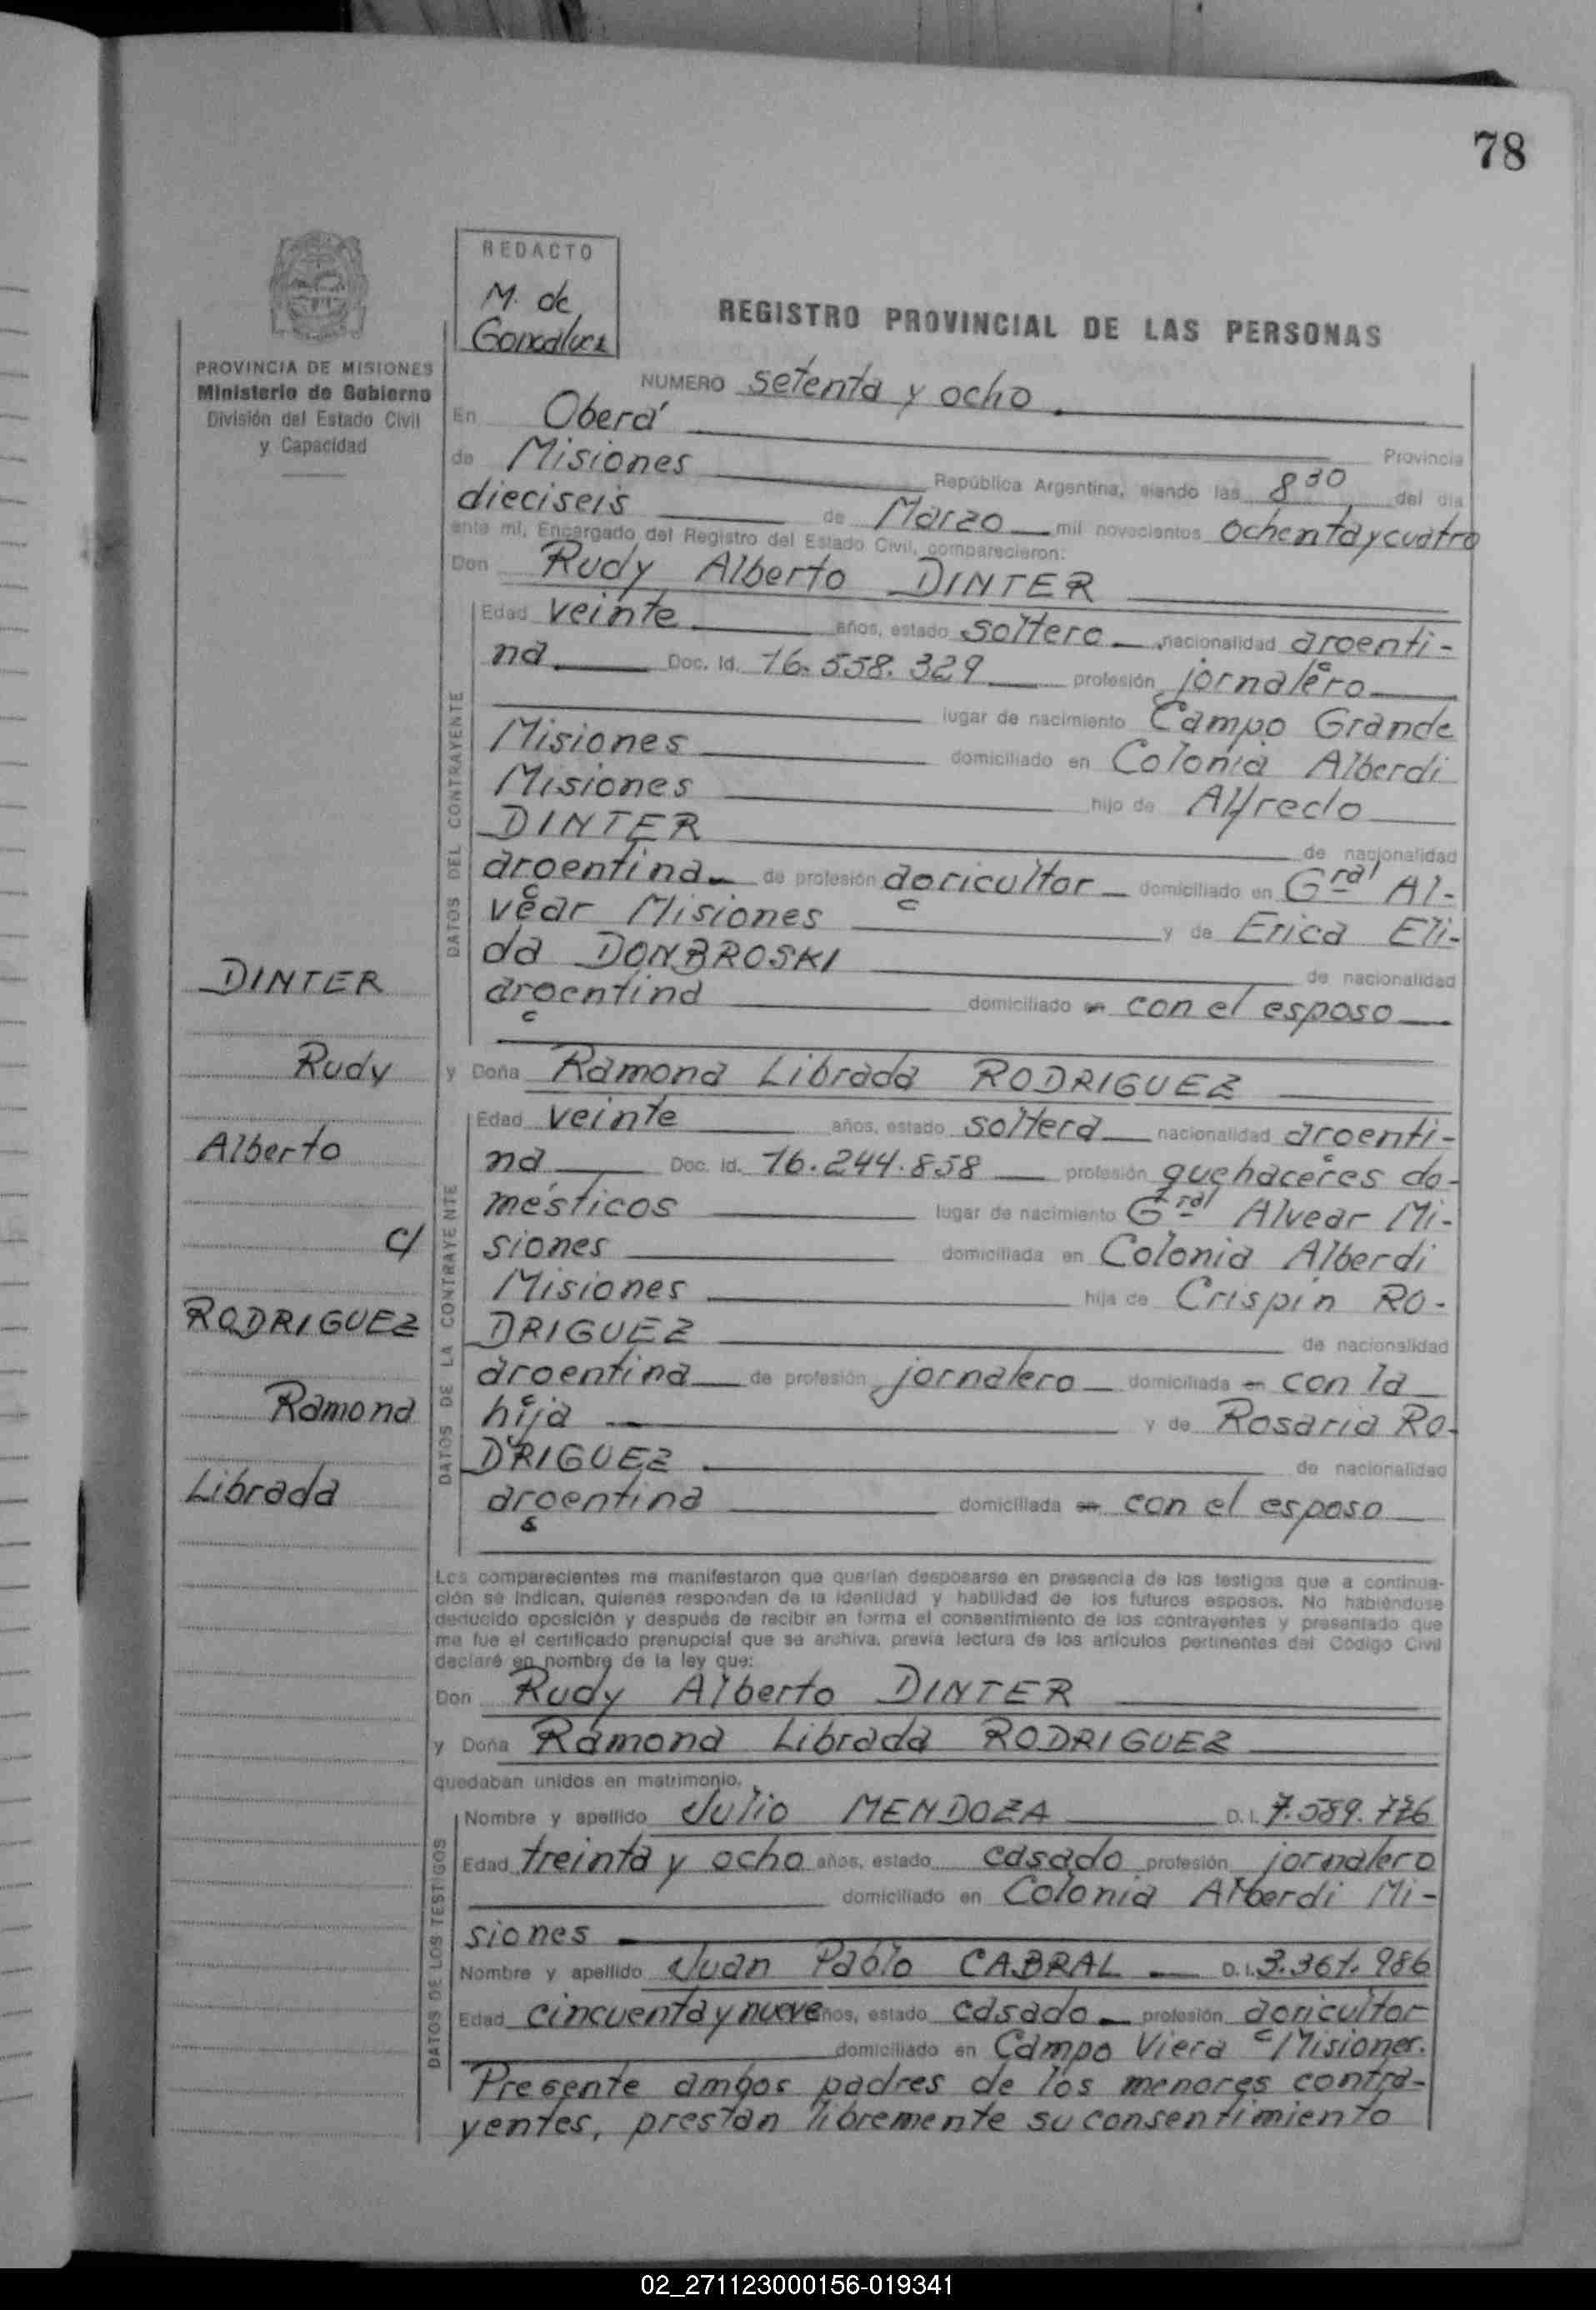 78
REDACTO
M. de
Goncalvez
REGISTRO PROVINCIAL DE LAS PERSONAS
PROVINCIA DE MISIONES
Ministerio de Gobierno
División del Estado Civil
y Capacidad
NUMERO setenta y ocho
En Oberá Provincia
de Misiones República Argentina, siendo las 8 30 del día
dieciseis de Marzo mil novecientos ochenta y cuatro
ante mí, Encargado del Registro del Estado Civil, comparecieron:
Don Rudy Alberto DINTER
DATOS DEL CONTRAYENTE
Edad veinte años, estado soltero nacionalidad argenti-
na Doc. Id. 16.558.329 profesión jornalero
lugar de nacimiento Campo Grande
Misiones domiciliado en Colonia Alberdi
Misiones hijo de Alfredo
DINTER de nacionalidad
argentina de profesión agricultor domiciliado en Gral Al-
vear Misiones y de Erica Eli-
da DONBROSKI de nacionalidad
argentina domiciliado en con el esposo
y Doña Ramona Librada RODRIGUEZ
DATOS DE LA CONTRAYENTE
Edad veinte años, estado soltera nacionalidad argenti-
na Doc. Id. 16.244.858 profesión quehaceres do-
mésticos lugar de nacimiento Gral Alvear Mi-
siones domiciliada en Colonia Alberdi
Misiones hija de Crispin RO-
DRIGUEZ de nacionalidad
argentina de profesión jornalero domiciliada en con la
hija y de Rosaria RO-
DRIGUEZ de nacionalidad
argentina domiciliada en con el esposo
DINTER
Rudy
Alberto
c/
RODRIGUEZ
Ramona
Librada
Los comparecientes me manifestaron que querían desposarse en presencia de los testigos que a continua-
ción se indican, quienes responden de la identidad y habilidad de los futuros esposos. No habiéndose
deducido oposición y después de recibir en forma el consentimiento de los contrayentes y presentado que
me fue el certificado prenupcial que se archiva, previa lectura de los artículos pertinentes del Código Civil
declaré en nombre de la ley que:
Don Rudy Alberto DINTER
y Doña Ramona Librada RODRIGUEZ
quedaban unidos en matrimonio.
DATOS DE LOS TESTIGOS
Nombre y apellido Julio MENDOZA D.I. 7.589.776
Edad treinta y ocho años, estado casado profesión jornalero
domiciliado en Colonia Alberdi Mi-
siones
Nombre y apellido Juan Pablo CABRAL D.I. 3.361.986
Edad cincuenta y nueve años, estado casado profesión agricultor
domiciliado en Campo Viera Misiones.
Presente ambos padres de los menores contra-
yentes, prestan libremente su consentimiento
02_271123000156-019341